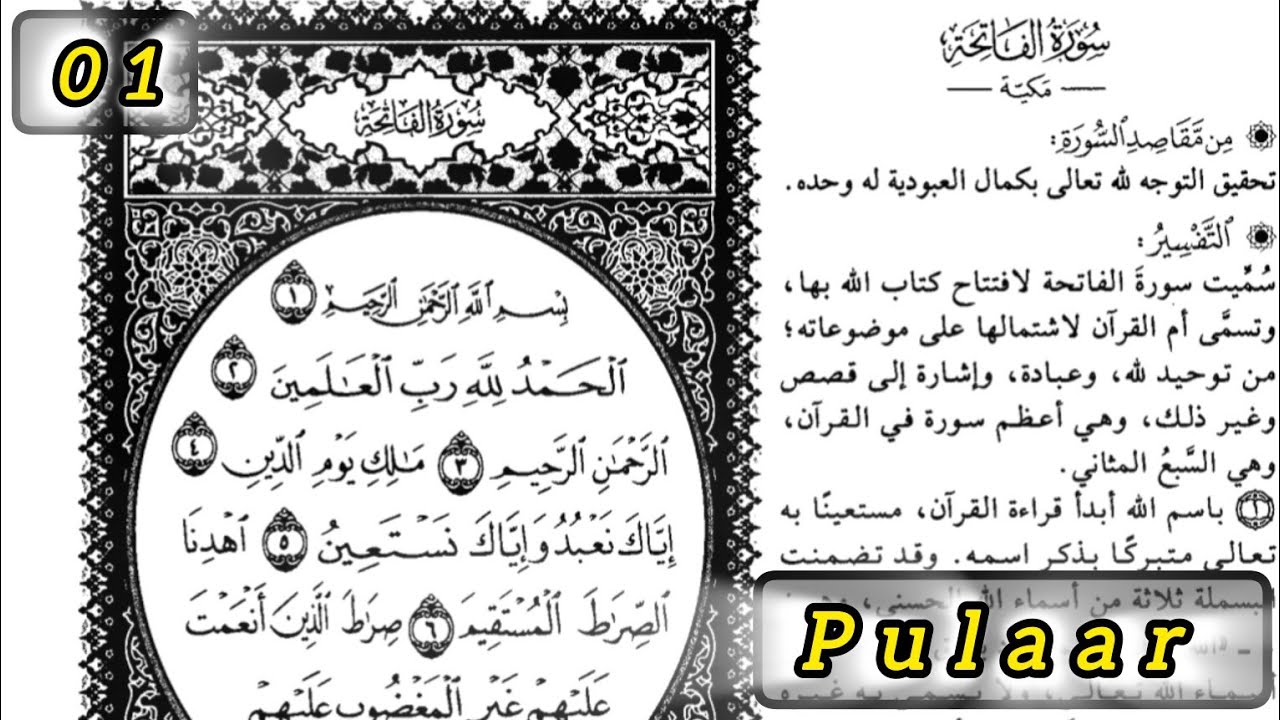 01
سُورَةُ الفَاتِحَةِ
بِسْمِ ٱللَّهِ ٱلرَّحْمَٰنِ ٱلرَّحِيمِ ١
ٱلْحَمْدُ لِلَّهِ رَبِّ ٱلْعَٰلَمِينَ ٢
ٱلرَّحْمَٰنِ ٱلرَّحِيمِ ٣ مَٰلِكِ يَوْمِ ٱلدِّينِ ٤
إِيَّاكَ نَعْبُدُ وَإِيَّاكَ نَسْتَعِينُ ٥ ٱهْدِنَا
ٱلصِّرَٰطَ ٱلْمُسْتَقِيمَ ٦ صِرَٰطَ ٱلَّذِينَ أَنْعَمْتَ
عَلَيْهِمْ غَيْرِ ٱلْمَغْضُوبِ عَلَيْهِمْ
سُورَةُ الفَاتِحَةِ
— مَكيّة —
مِن مَّقَاصِدِ ٱلسُّورَةِ:
تحقيق التوجه لله تعالى بكمال العبودية له وحده.
ٱلتَّفْسِيرُ:
سُمِّيت سورةَ الفاتحة لافتتاح كتاب الله بها،
وتسمَّى أم القرآن لاشتمالها على موضوعاته؛
من توحيد لله، وعبادة، وإشارة إلى قصص
وغير ذلك، وهي أعظم سورة في القرآن،
وهي السَّبعُ المثاني.
١ باسم الله أبدأ قراءة القرآن، مستعينًا به
تعالى متبركًا بذكر اسمه. وقد تضمنت
البسملة ثلاثة من أسماء الله الحسنى،
أسماء الله تعالى، ولا يسمى به غيره
Pulaar